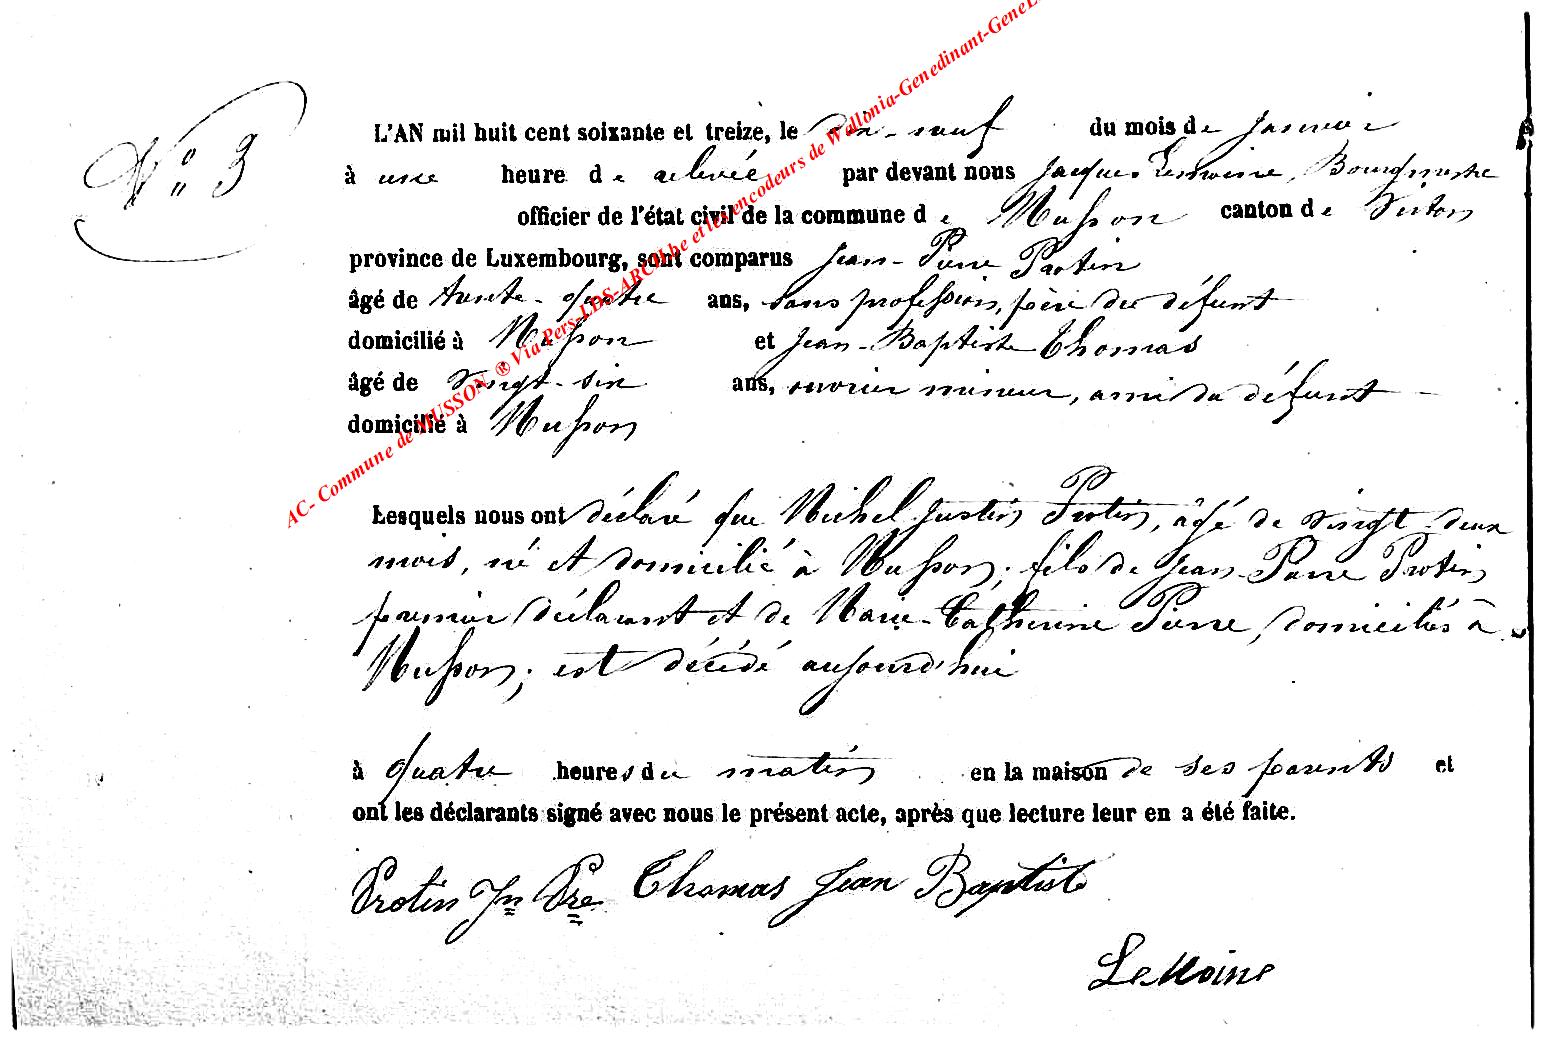 N° 3
L'AN mil huit cent soixante et treize, le dix-neuf du mois de Janvier
à une heure de relevée par devant nous Jacques Lemoine, Bourgmestre
officier de l'état civil de la commune de Musson canton de Virton
province de Luxembourg, sont comparus Jean-Pierre Protin
âgé de trente-quatre ans, sans profession, père du défunt
domicilié à Musson et Jean-Baptiste Thomas
âgé de vingt-six ans, ouvrier mineur, ami du défunt
domicilié à Musson
Lesquels nous ont déclaré que Michel Justin Protin, âgé de vingt-deux
mois, né et domicilié à Musson; fils de Jean-Pierre Protin
premier déclarant et de Marie-Catherine Pierre, domiciliés à
Musson; est décédé aujourd'hui
à quatre heures du matin en la maison de ses parents et
ont les déclarants signé avec nous le présent acte, après que lecture leur en a été faite.
Protin Jn Pre Thomas Jean Baptiste
LeMoine
AC- Commune de MUSSON ® Via Pers-LDS-ARCH.be et les encodeurs de Wallonia-Genedinant-GeneL